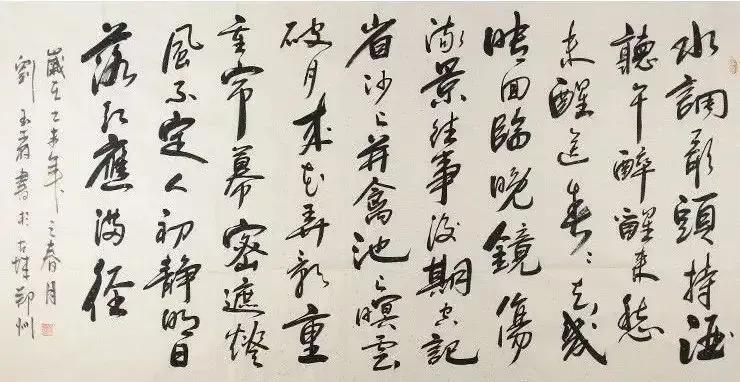 水調歌頭持酒
聽午醉醒來愁
未醒送春〻去幾
時回臨晚鏡傷
流景往事後期空記
省沙上并禽池上暝雲
破月來花弄影重
重帘幕密遮燈
風不定人初靜明日
落紅應滿徑
歲在乙未年之春月
劉玉書於古城鄭州